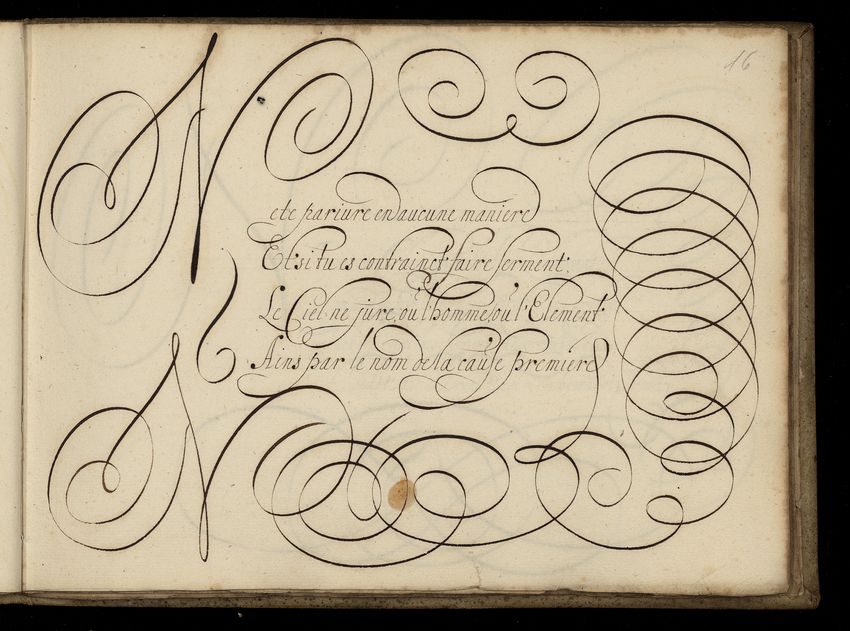 16
Ne te pariure en aucune maniere
Et si tu es contrainct faire serment.
Le Ciel ne jure, ou l'homme, ou l'Element
Ains par le nom de la cause premiere
N